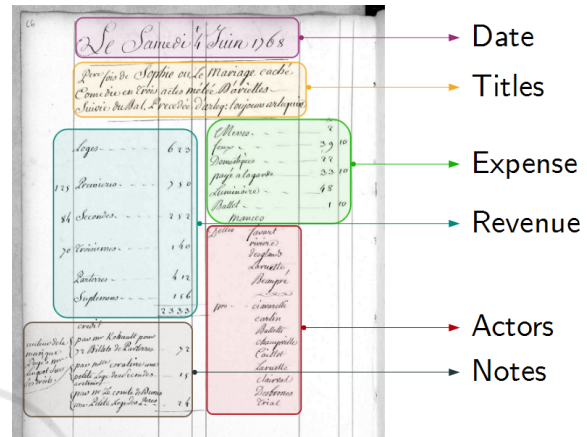 66
Le Samedi 4 Juin 1768
Date
pere fois de Sophie ou Le Mariage caché
Comedie en Trois actes mêlée D'ariettes
Suivie du Bal, Precedée d'arleq: toujours arlequin
Titles
Loges 623
125 Premieres 750
84 Secondes 252
70 Troisiemes 140
Parterres 412
Suplemens 156
2333
Revenue
Menus 2
feux 39 10
Domestiques 22
payé a la garde 33 10
Luminaire 48
Ballet 1 10
Mances
Expense
Delles favart
riviere
desglands
Laruette
Beaupré
Mrs ciavarelli
carlin
Balletti
champville
Caillot
Laruette
clairval
Desbrosses
Trial
Actors
credit
par mr Kohault pour
72 Billets de Parterres 72
par mlle coraline une
petite Loge des secondes 15
par Mr Le comte de
une Petite Loge des 24
auteur de la
musique
Notes